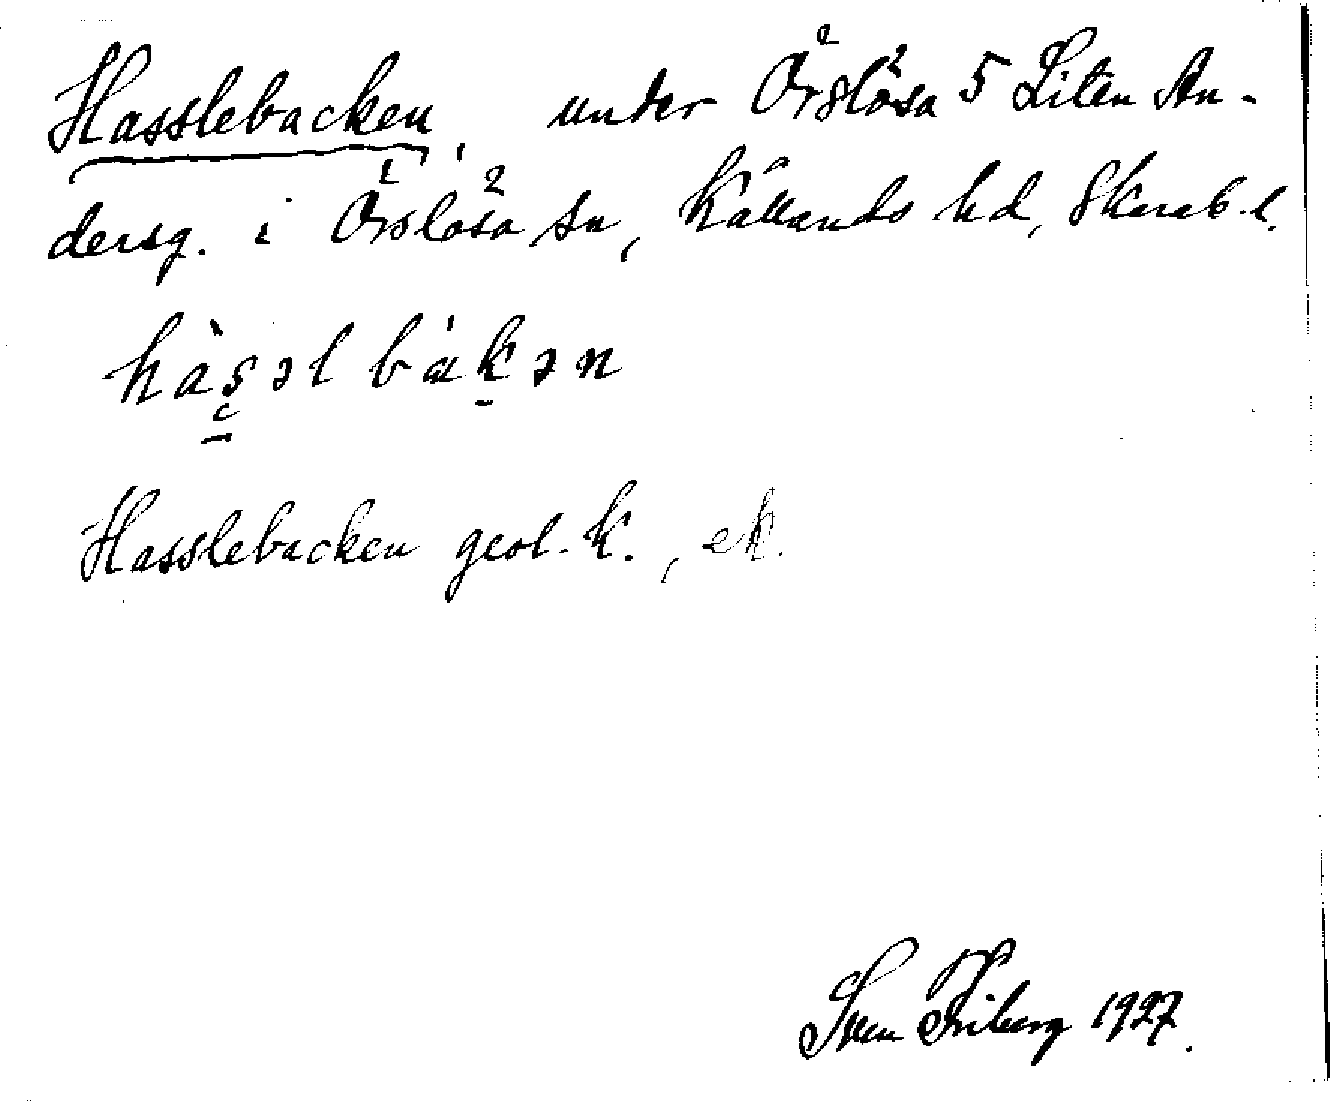 Hasslebacken, under Örslösa 5 Liten An-
dersg. i Örslösa sn, Kållands hd, Skarab. l.
hàs̱əl bàḵən
Hasslebacken geol. k., ek.
Sven Friberg 1927.